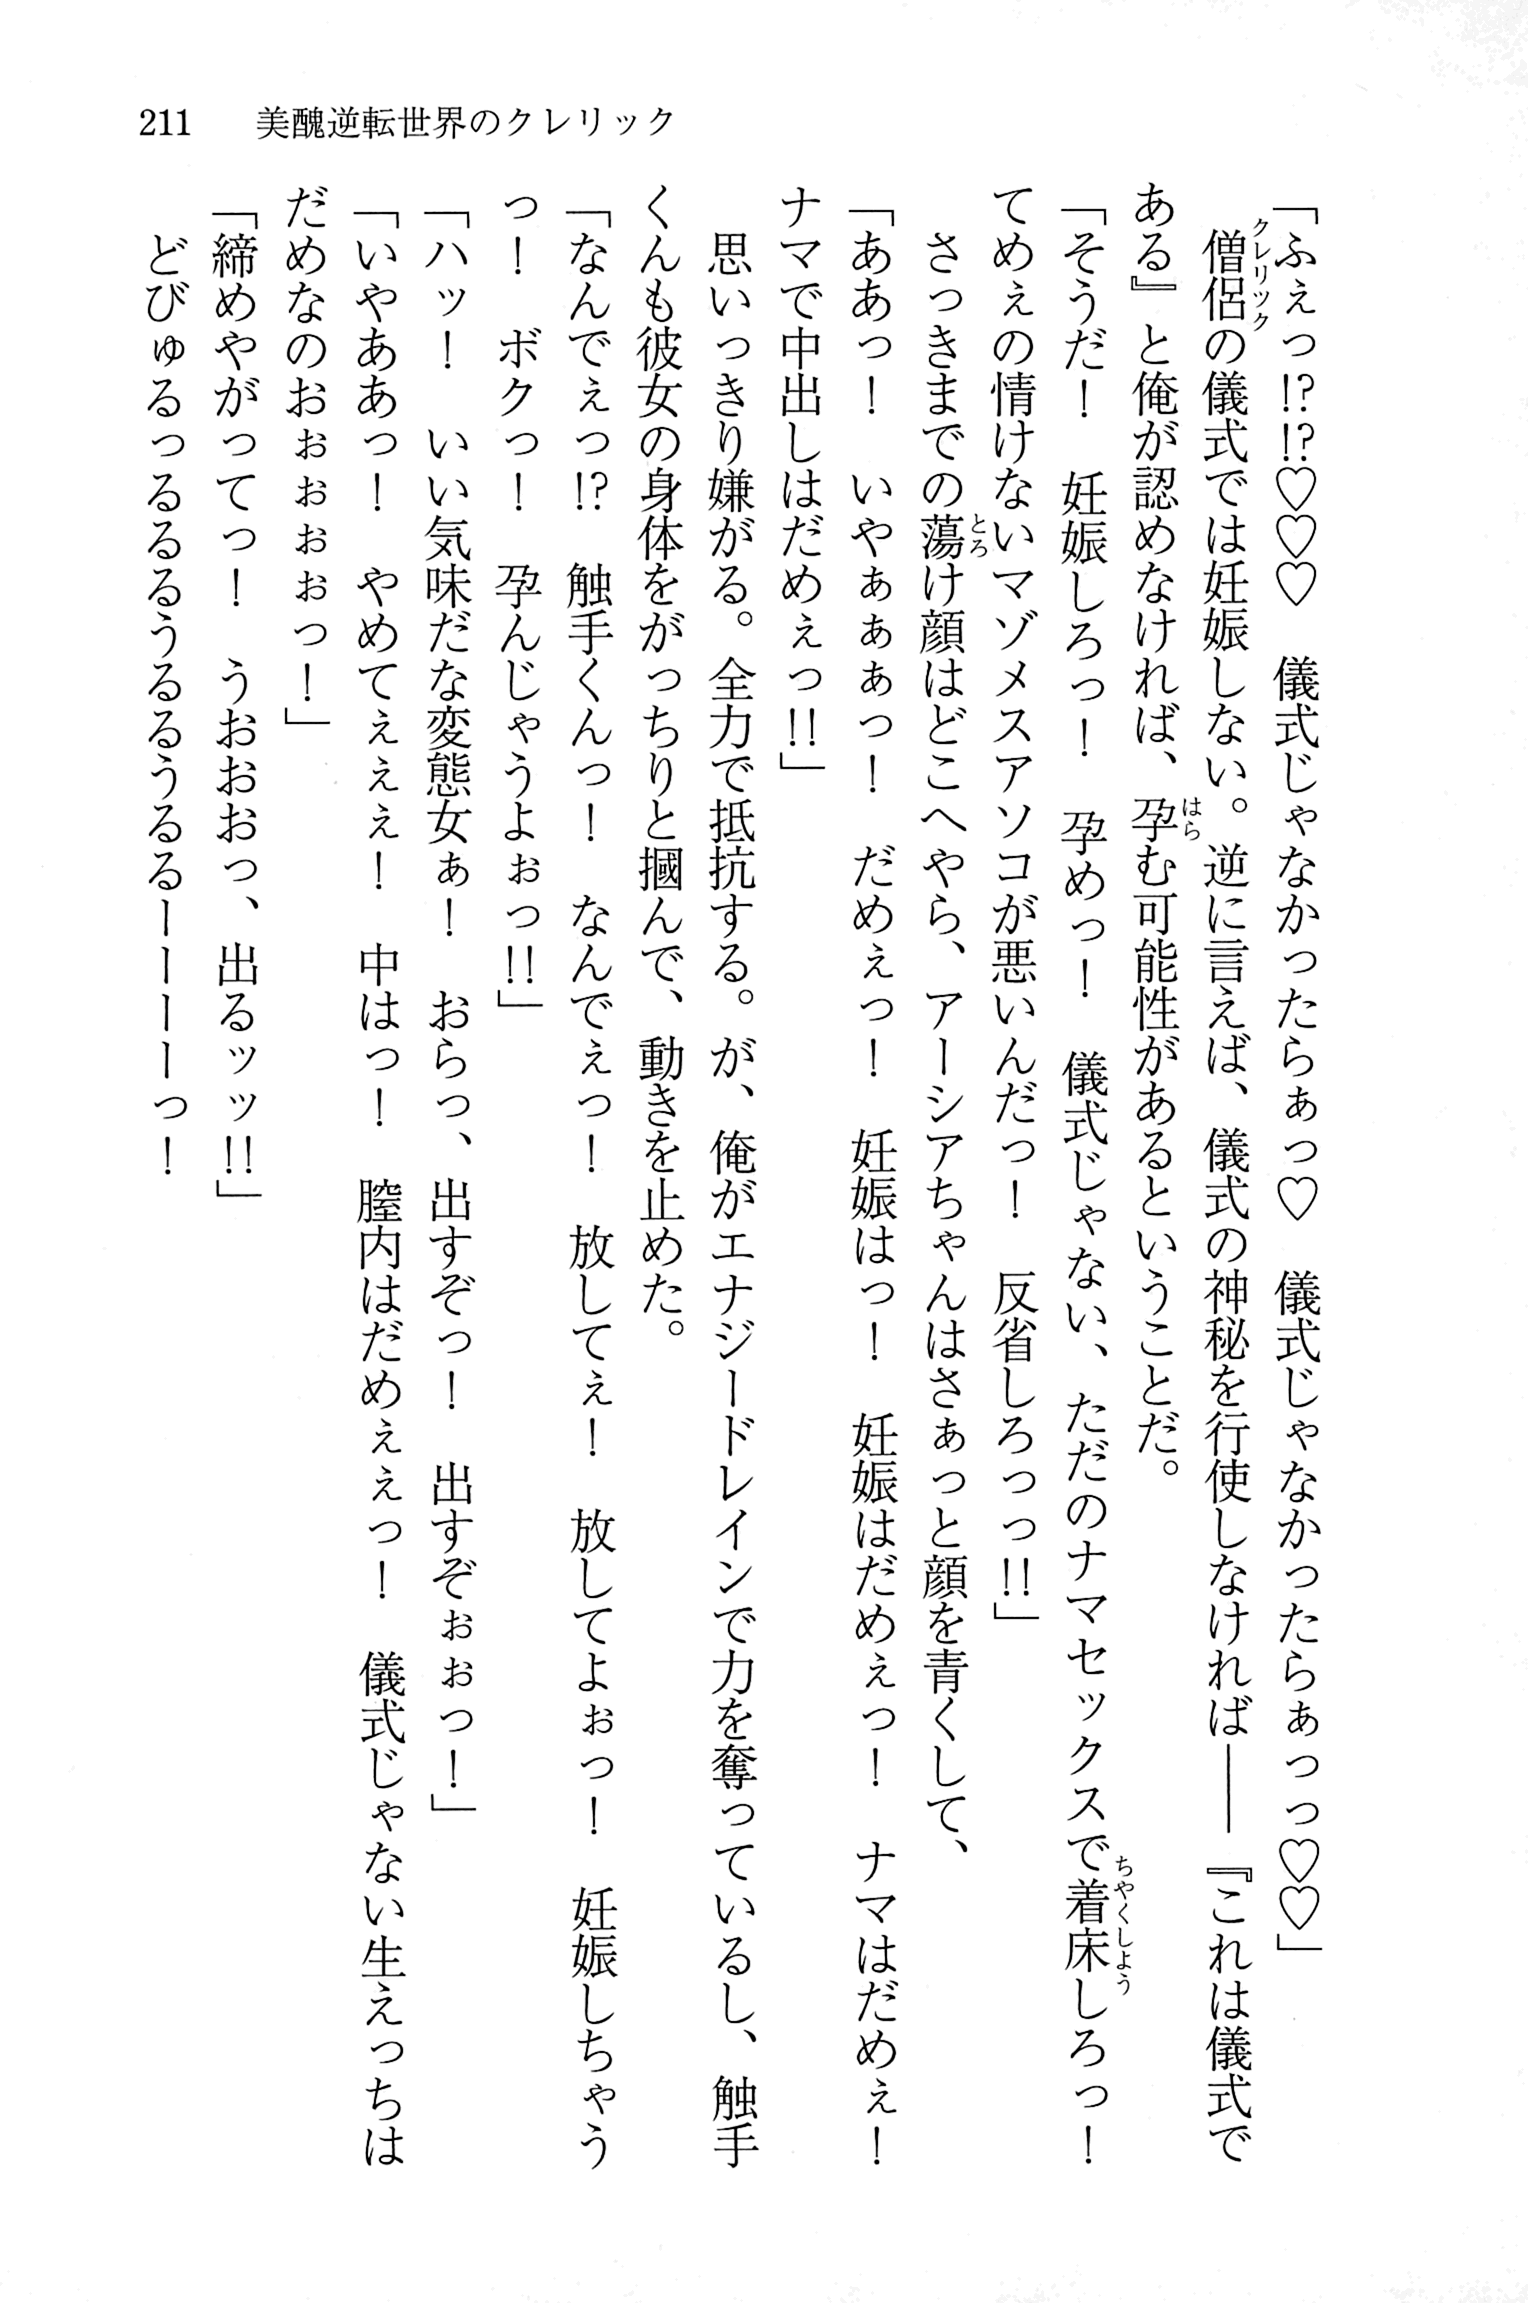 211　美醜逆転世界のクレリック
「ふぇっ!?!?♡♡♡　儀式じゃなかったらぁっ♡　儀式じゃなかったらぁっっ♡♡」
　僧侶の儀式では妊娠しない。逆に言えば、儀式の神秘を行使しなければ――『これは儀式で
クレリック
ある』と俺が認めなければ、孕む可能性があるということだ。
はら
「そうだ！　妊娠しろっ！　孕めっ！　儀式じゃない、ただのナマセックスで着床しろっ！
ちやくしよう
てめぇの情けないマゾメスアソコが悪いんだっ！　反省しろっっ!!」
　さっきまでの蕩け顔はどこへやら、アーシアちゃんはさぁっと顔を青くして、
とろ
「ああっ！　いやぁぁぁっ！　だめぇっ！　妊娠はっ！　妊娠はだめぇっ！　ナマはだめぇ！
ナマで中出しはだめぇっ!!」
　思いっきり嫌がる。全力で抵抗する。が、俺がエナジードレインで力を奪っているし、触手
くんも彼女の身体をがっちりと摑んで、動きを止めた。
「なんでぇっ!?　触手くんっ！　なんでぇっ！　放してぇ！　放してよぉっ！　妊娠しちゃう
っ！　ボクっ！　孕んじゃうよぉっ!!」
「ハッ！　いい気味だな変態女ぁ！　おらっ、出すぞっ！　出すぞぉぉっ！」
「いやああっ！　やめてぇぇぇ！　中はっ！　膣内はだめぇぇっ！　儀式じゃない生えっちは
だめなのおぉぉぉぉっ！」
「締めやがってっ！　うおおおっ、出るッッ!!」
　どびゅるっるるるうるるうるるーーーーっ！